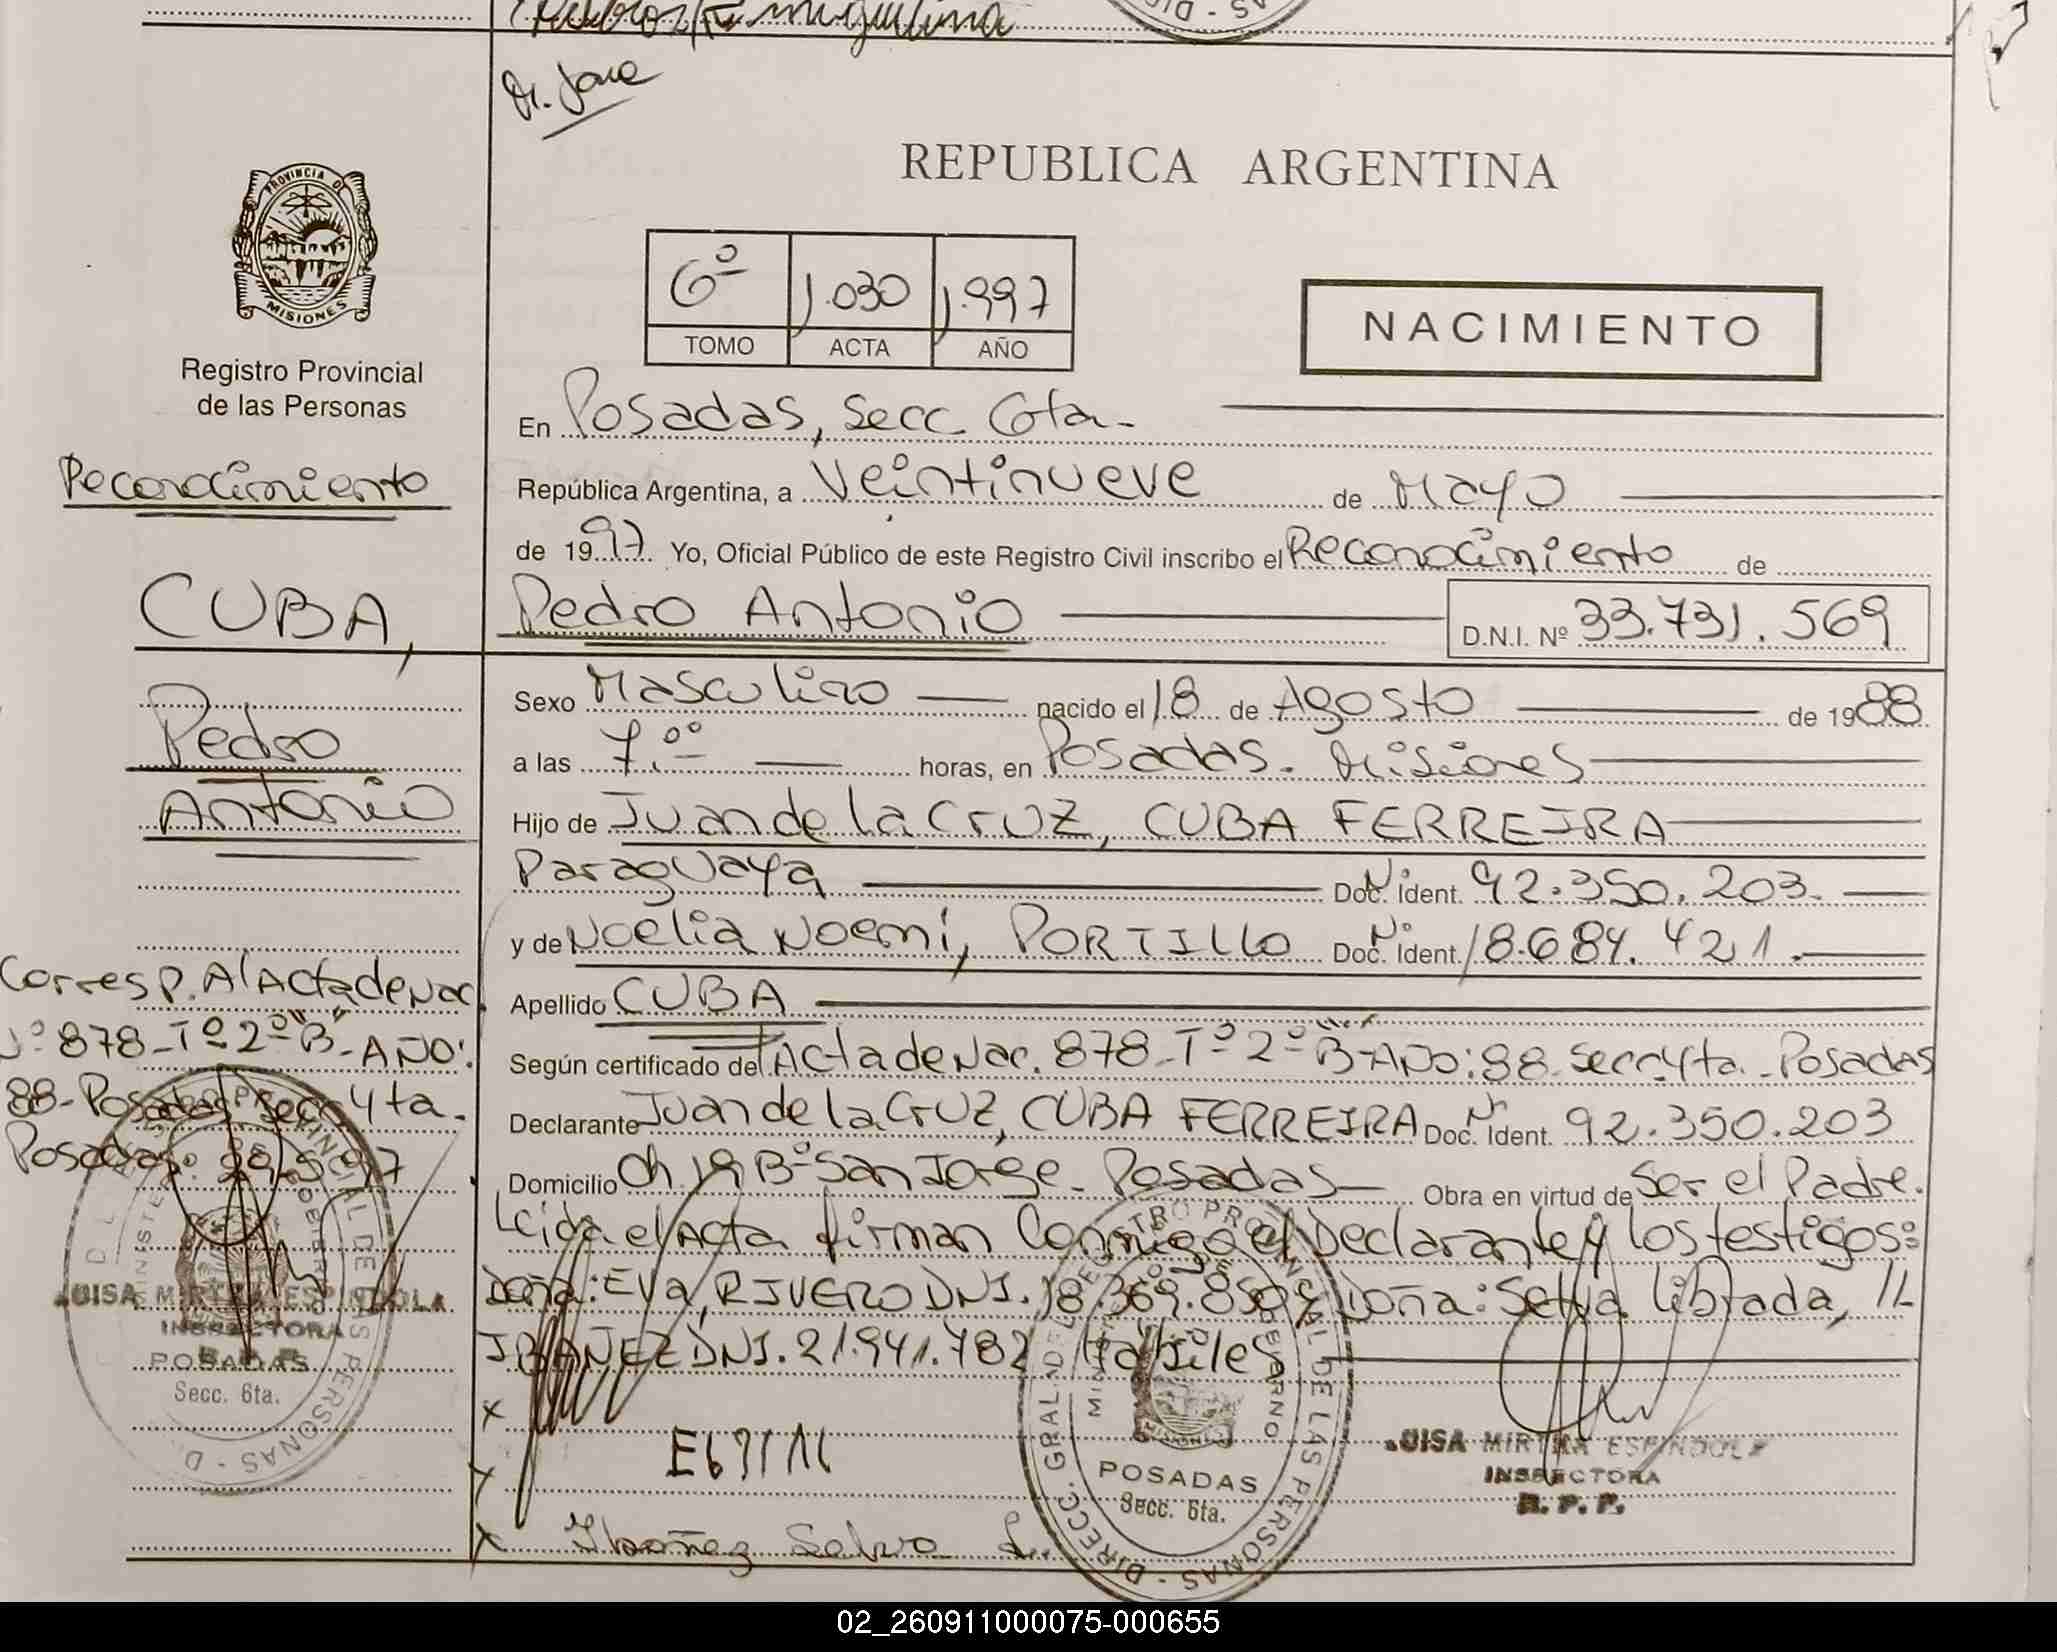 Dr. Jone
PROVINCIA DE
MISIONES
Registro Provincial
de las Personas
Reconocimiento
CUBA,
Pedro
Antonio
Corresp. Al Acta de Nac.
Nº 878-Tº 2º "B"-AÑO:
88-Posadas Secc 4ta.
Posadas: 29/5/97
LUISA MIRTHA ESPINDOLA
INSPECTORA
R. P. P.
POSADAS
Secc. 6ta.
REPUBLICA ARGENTINA
6º 1.030 1.997
TOMO ACTA AÑO
NACIMIENTO
En Posadas, Secc 6ta-
República Argentina, a Veintinueve de Mayo
de 1997 Yo, Oficial Público de este Registro Civil inscribo el Reconocimiento de
Pedro Antonio D.N.I. Nº 33.731.569
Sexo Masculino nacido el 18 de Agosto de 1988
a las 7.ºº horas, en Posadas. Misiones
Hijo de Juan de la Cruz, CUBA FERREIRA
Paraguaya Doc. Nº Ident. 92.350.203.
y de Noelia Noemi, PORTILLO Doc. Nº Ident. 18.684.421.
Apellido CUBA
Según certificado del Acta de Nac. 878-Tº 2º "B"-AÑO: 88-Secc 4ta.-Posadas
Declarante Juan de la Cruz, CUBA FERREIRA Doc. Nº Ident. 92.350.203
Domicilio Ch 19 Bº San Jorge-Posadas Obra en virtud de Ser el Padre.
Leida el Acta firman Conmigo el Declarante y los testigos:
Doña: Eva, RIVERO DNI. 18.369.850 y Doña: Selva Librada, //-
IBAÑEZ DNI. 21.941.782 Habiles
x
x
x Ibañez Selva L.
DIRECC. GRAL. DEL REGISTRO PROVINCIAL DE LAS PERSONAS
MINISTERIO DE GOBIERNO
POSADAS
Secc. 6ta.
LUISA MIRTHA ESPINDOLA
INSPECTORA
R. P. P.
02_260911000075-000655